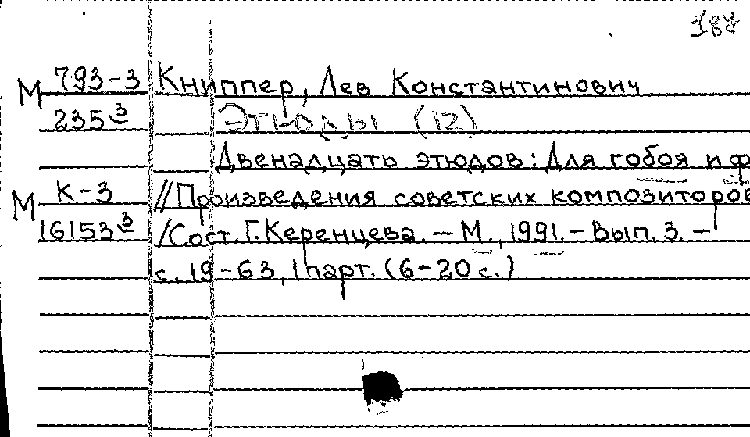 187
М 793-3 Книппер, Лев Константинович
235³ Этюды (12)
Двенадцать этюдов: Для гобоя и ф
М К-3 //Произведения советских композиторов
16153³ /Сост. Г. Керенцева. – М., 1991. – Вып. 3. –
с. 19-63, 1 парт. (6-20 с.)